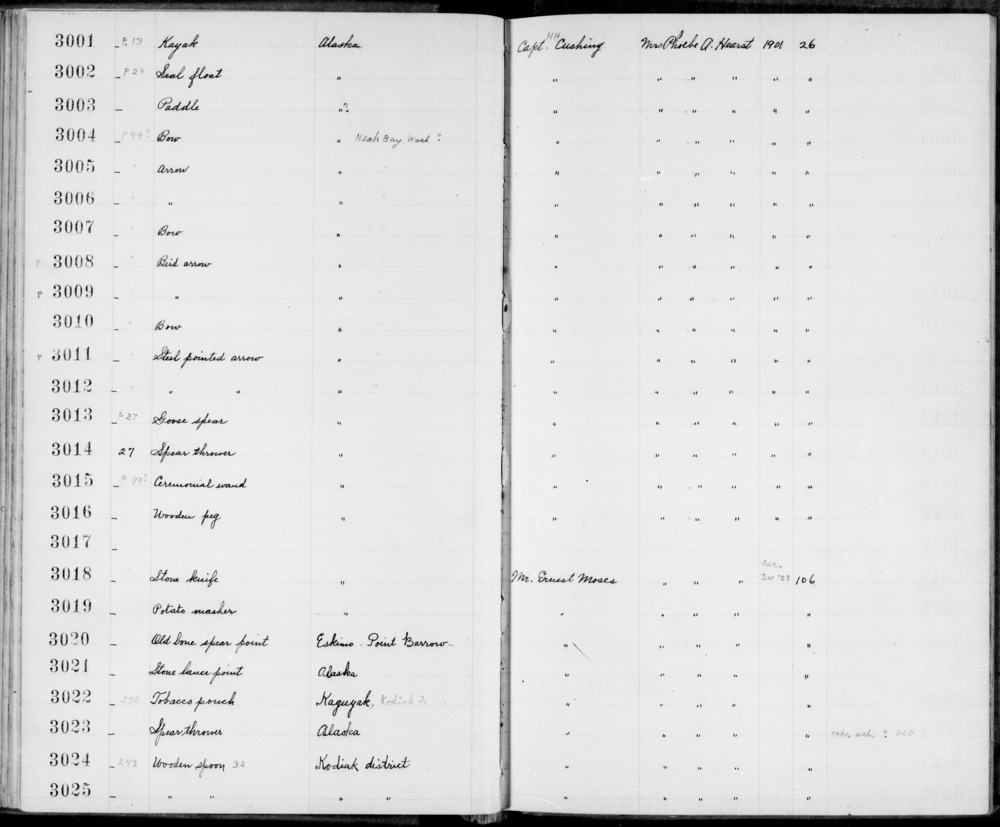 3001 P.13 Kayak Alaska Capt. HH Cushing Mrs Phoebe A. Hearst 1901 26
3002 P 24 Seal float " " " " " " "
3003 Paddle "? " " " " " "
3004 P 49? Bow " Neah Bay Wash? " " " " " "
3005 Arrow " " " " " " "
3006 " " " " " " " "
3007 Bow " " " " " " "
P 3008 Bird arrow " " " " " " "
P 3009 " " " " " " " "
3010 Bow " " " " " " "
P 3011 Steel pointed arrow " " " " " " "
3012 " " " " " " " " "
3013 P 27 Goose spear " " " " " " "
3014 27 Spear thrower " " " " " " "
3015 Ceremonial wand " " " " " " "
3016 Wooden peg " " " " " " "
3017
3018 Stone knife " Mr. Ernest Moses " " " Rec. Dec '03 106
3019 Potato masher " " " " " " "
3020 Old bone spear point Eskimo. Point Barrow. " " " " " "
3021 Stone lance point Alaska " " " " " "
3022 Tobacco pouch Kaguyak, Kodiak I. " " " " " "
3023 Spear thrower Alaska " " " " " "
3024 243 Wooden spoon 32 Kodiak district " " " " " "
3025 " " " " " " " " " "